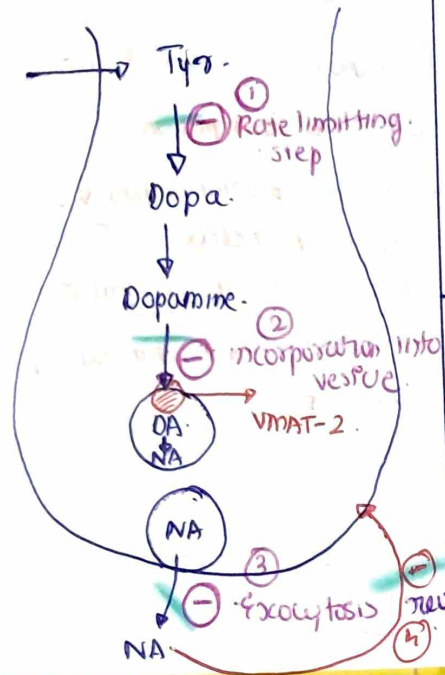 Tyr.
①
⊖ Rate limitting.
step
Dopa.
Dopamine.
②
⊖ incorporation into
vesicle.
VMAT-2.
DA.
NA
NA
③
⊖ Exocytosis
⊖
④
NA.